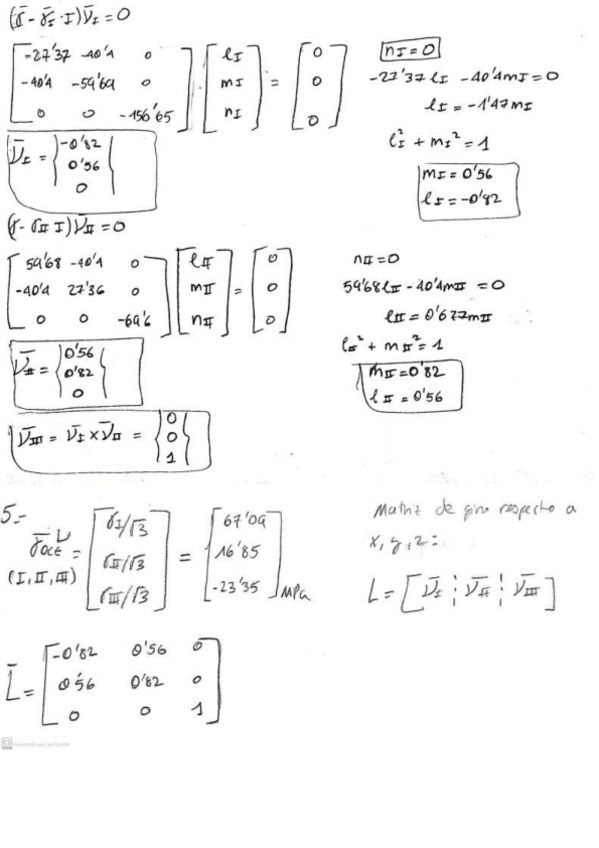 (σ̄ - σ̄I · I) ν̄I = 0
[ -27'37 -40'4 0 ; -40'4 -59'69 0 ; 0 0 -156'65 ] · [ lI ; mI ; nI ] = [ 0 ; 0 ; 0 ]
nI = 0
-27'37 lI - 40'4 mI = 0
lI = -1'47 mI
lI² + mI² = 1
mI = 0'56
lI = -0'82
ν̄I = { -0'82 ; 0'56 ; 0 }
(σ - σII I) ν̄II = 0
[ 59'68 -40'4 0 ; -40'4 27'36 0 ; 0 0 -69'6 ] [ lII ; mII ; nII ] = [ 0 ; 0 ; 0 ]
nII = 0
59'68 lII - 40'4 mII = 0
lII = 0'677 mII
lII² + mII² = 1
mII = 0'82
lII = 0'56
ν̄II = { 0'56 ; 0'82 ; 0 }
ν̄III = ν̄I x ν̄II = { 0 ; 0 ; 1 }
5.-
σ̄oct (I, II, III) = [ σI/√3 ; σII/√3 ; σIII/√3 ] = [ 67'09 ; 16'85 ; -23'35 ] MPa
Matriz de giro respecto a
x, y, z:
L = [ ν̄I ⋮ ν̄II ⋮ ν̄III ]
L̄ = [ -0'82 0'56 0 ; 0'56 0'82 0 ; 0 0 1 ]
CS